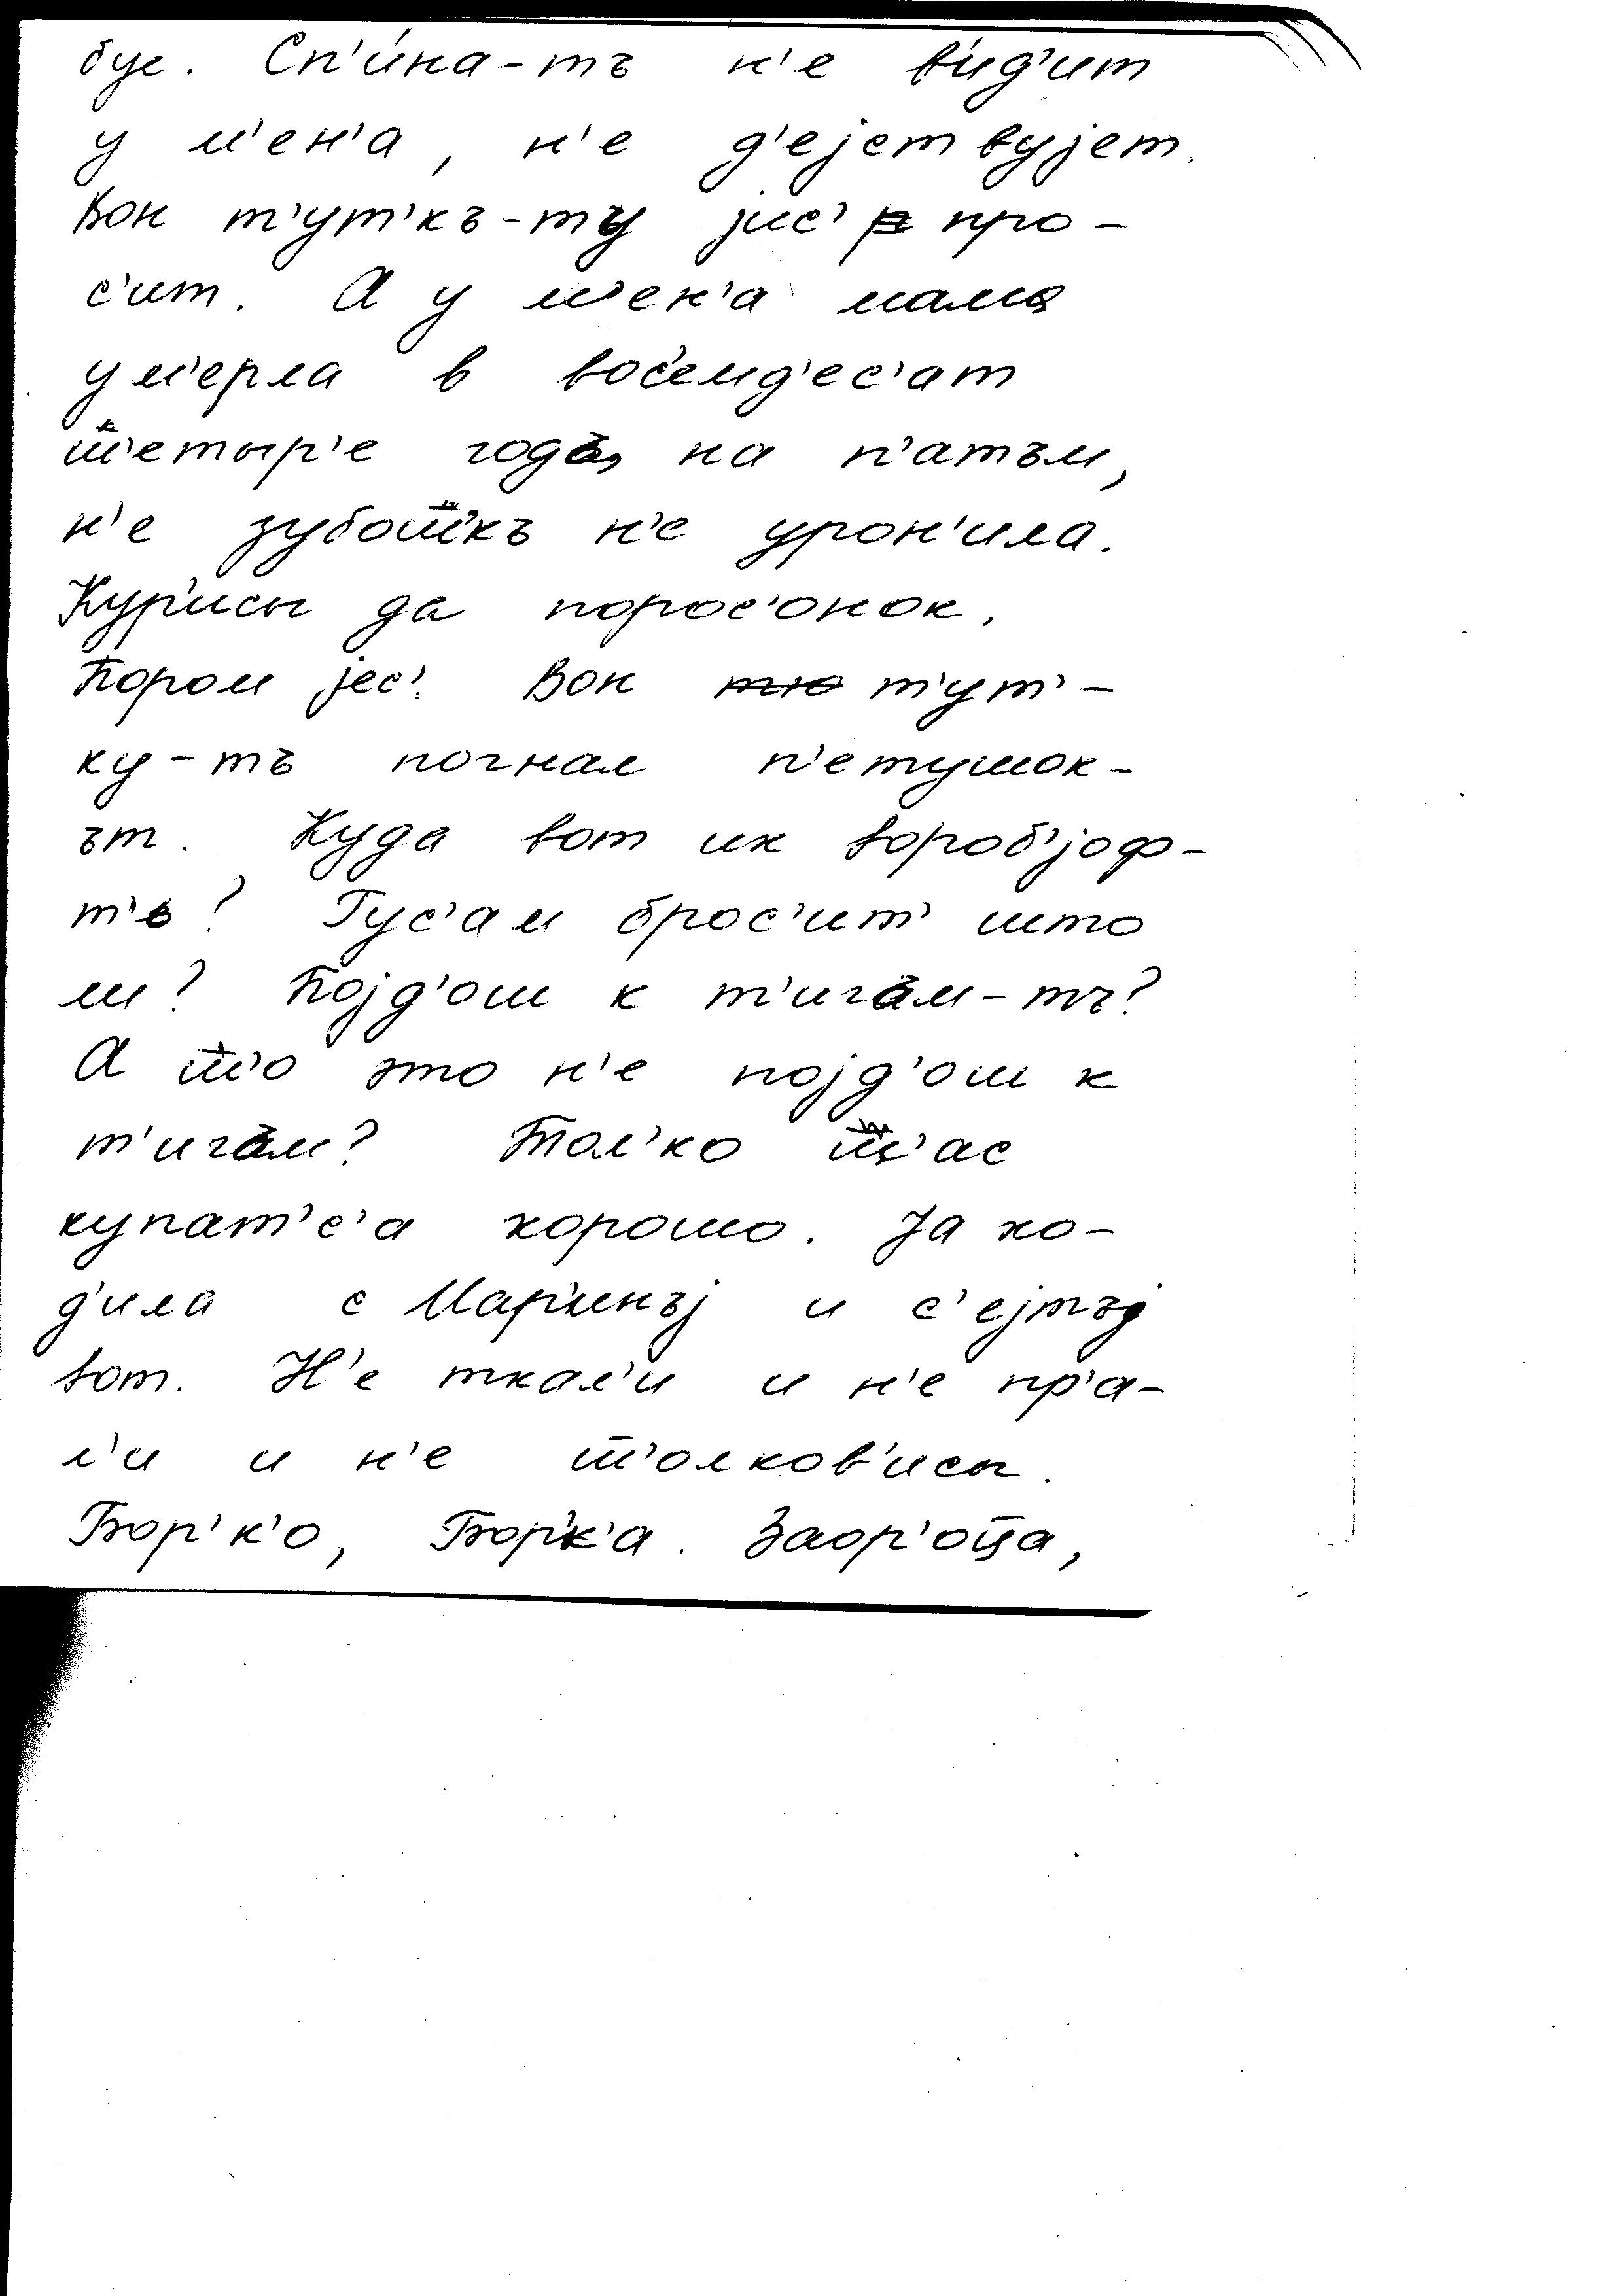 бус. Сп'и́на-тъ н'е в'ид'ит
у м'ен'а, н'е д'ејствујет.
Вон т'ут'къ-ту јис' про-
с'ит. А у м'ен'а мама
ум'ерла в вос'емд'ес'ат
ш̄'етыр'е года, на п'атъм,
н'е зубош̄'къ н'е урон'ила.
Кур'исы да порос'онок.
Кором јес'. Вон т'ут'-
ку-тъ погнал п'етушок-
ът. Куда вот их вороб'јоф-
т'ь? Гус'ам брос'ит' што
ли? Појд'ош к т'ига́м-тъ?
А ш̄'о это н'е појд'ош к
т'ига́м? Тол'ко ш̄'ас
купат'с'а хорошо. Ја хо-
д'ила с Мар'инъј и с'ејтъј
вот. Н'е ткал'и и н'е пр'а-
л'и и н'е ш̄'олков'исы.
Бор'к'о, Бор'к'а. Заор'оц̄а,